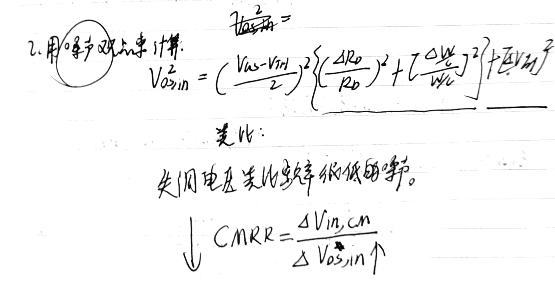 V²os,in =
2.用噪声观点来计算.
V²os,in = (VGS-VTH/2)²{(ΔRD/RD)²+[ΔW/L/W/L]²}+[ΔVTH]²
类比:
失调电压类比频率很低的噪声。
↓ CMRR = ΔVin,cm/ΔVos,in↑